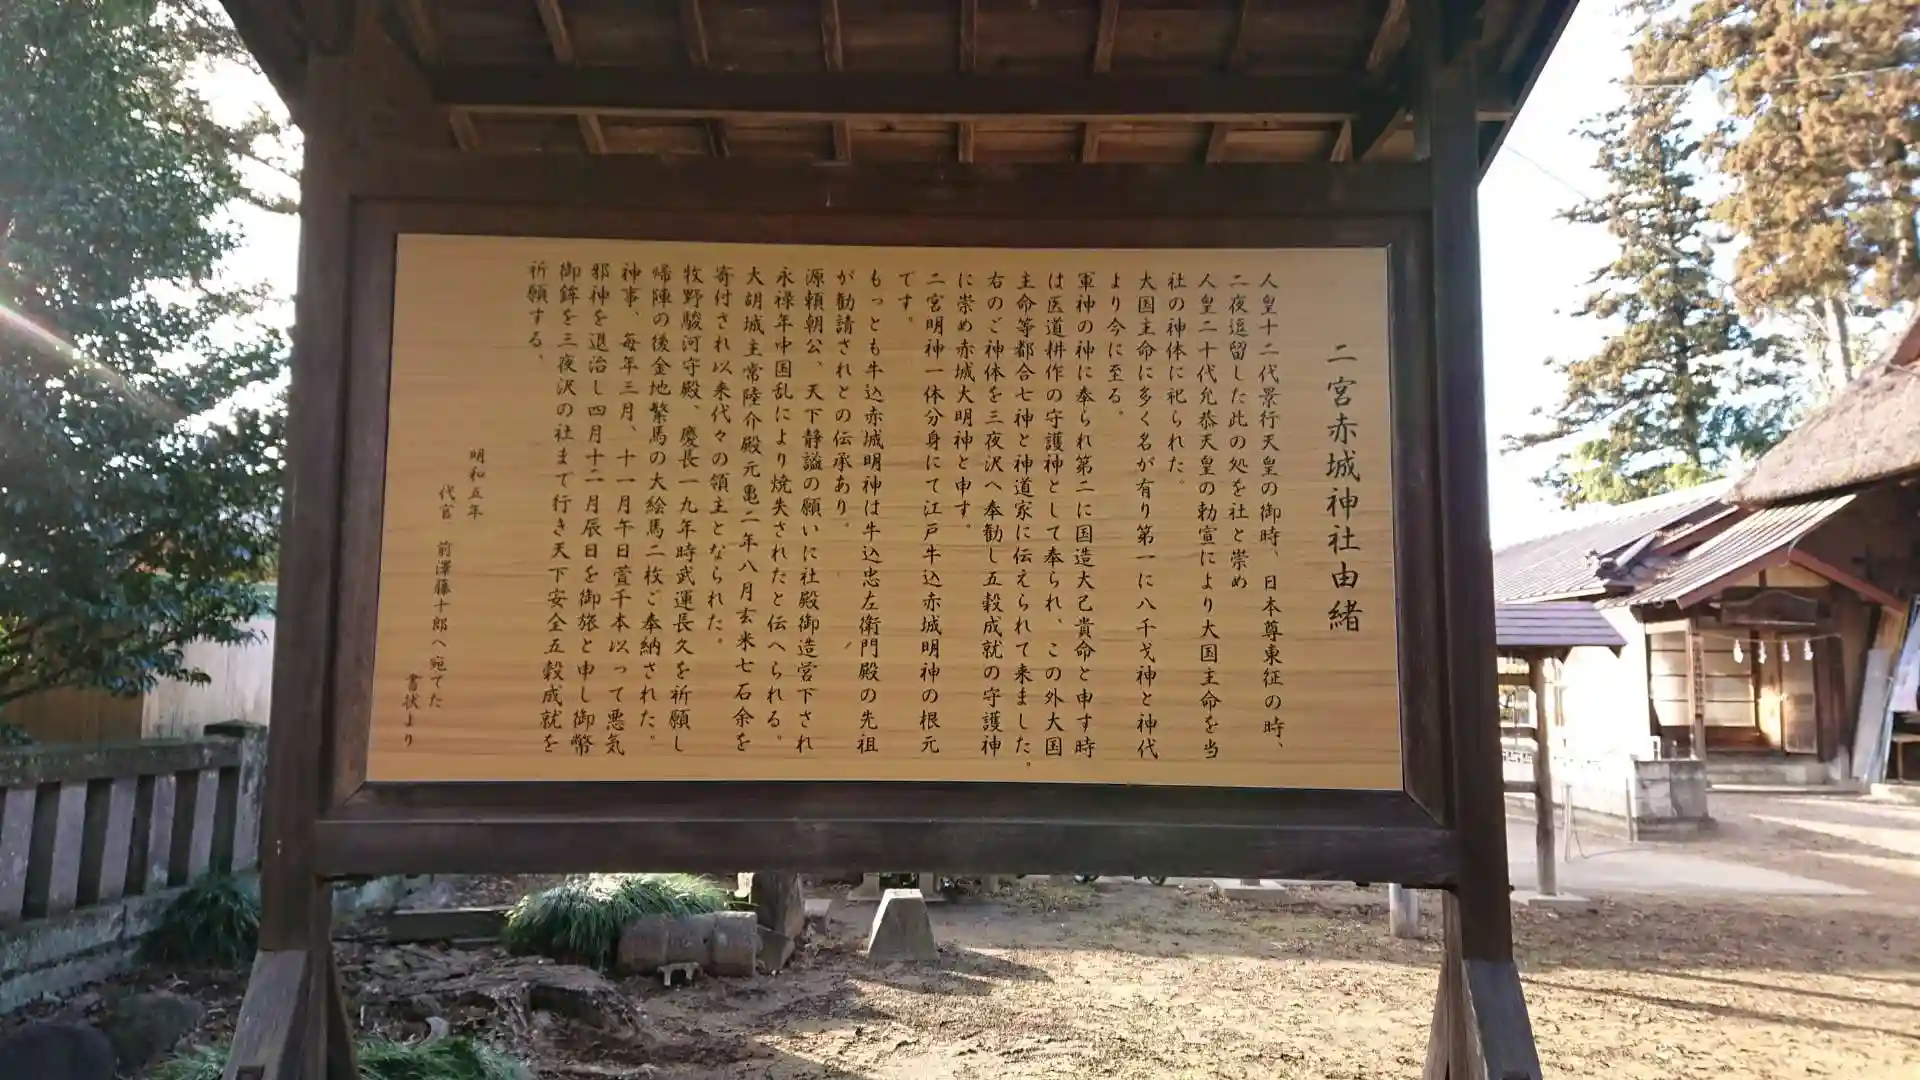 二宮赤城神社由緒
人皇十二代景行天皇の御時、日本尊東征の時、
二夜逗留した此の処を社と崇め
人皇二十代允恭天皇の勅宣により大国主命を当
社の神体に祀られた。
大国主命に多く名が有り第一に八千戈神と神代
より今に至る。
軍神の神に奉られ第二に国造大己貴命と申す時
は医道耕作の守護神として奉られ、この外大国
主命等都合七神と神道家に伝えられて来ました。
右のご神体を三夜沢へ奉勧し五穀成就の守護神
に崇め赤城大明神と申す。
二宮明神一体分身にて江戸牛込赤城明神の根元
です。
もっとも牛込赤城明神は牛込忠左衛門殿の先祖
が勧請されとの伝承あり。
源頼朝公、天下静謐の願いに社殿御造営下され
永禄年中国乱により焼失されたと伝へられる。
大胡城主常陸介殿元亀二年八月玄米七石余を
寄付され以来代々の領主となられた。
牧野駿河守殿、慶長一九年時武運長久を祈願し
帰陣の後金地繋馬の大絵馬二枚ご奉納された。
神事、毎年三月、十一月午日萱千本以って悪気
邪神を退治し四月十二月辰日を御旅と申し御幣
御鉾を三夜沢の社まで行き天下安全五穀成就を
祈願する、
明和五年
代官 前澤藤十郎へ宛てた
書状より